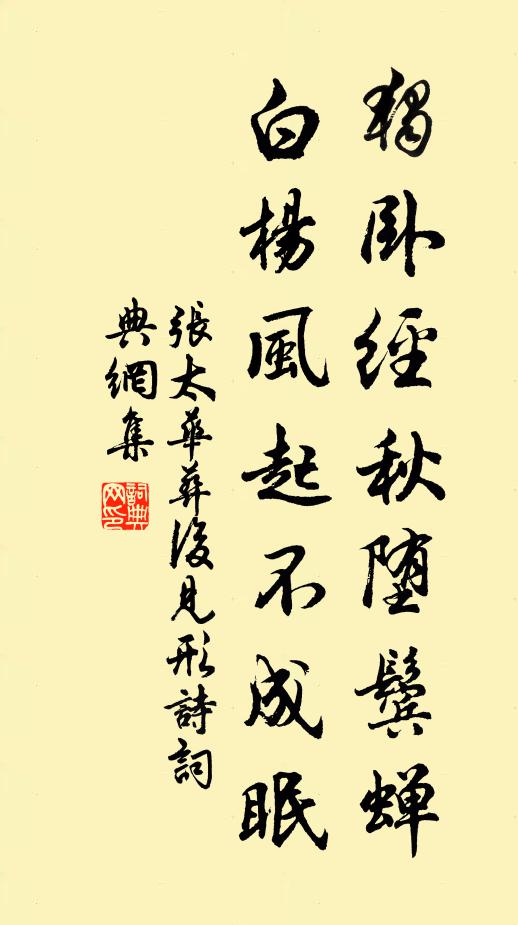 獨卧經秋堕鬓蝉
白楊風起不成眠
張太華葬後見形詩詞
典網集
詞典
网印